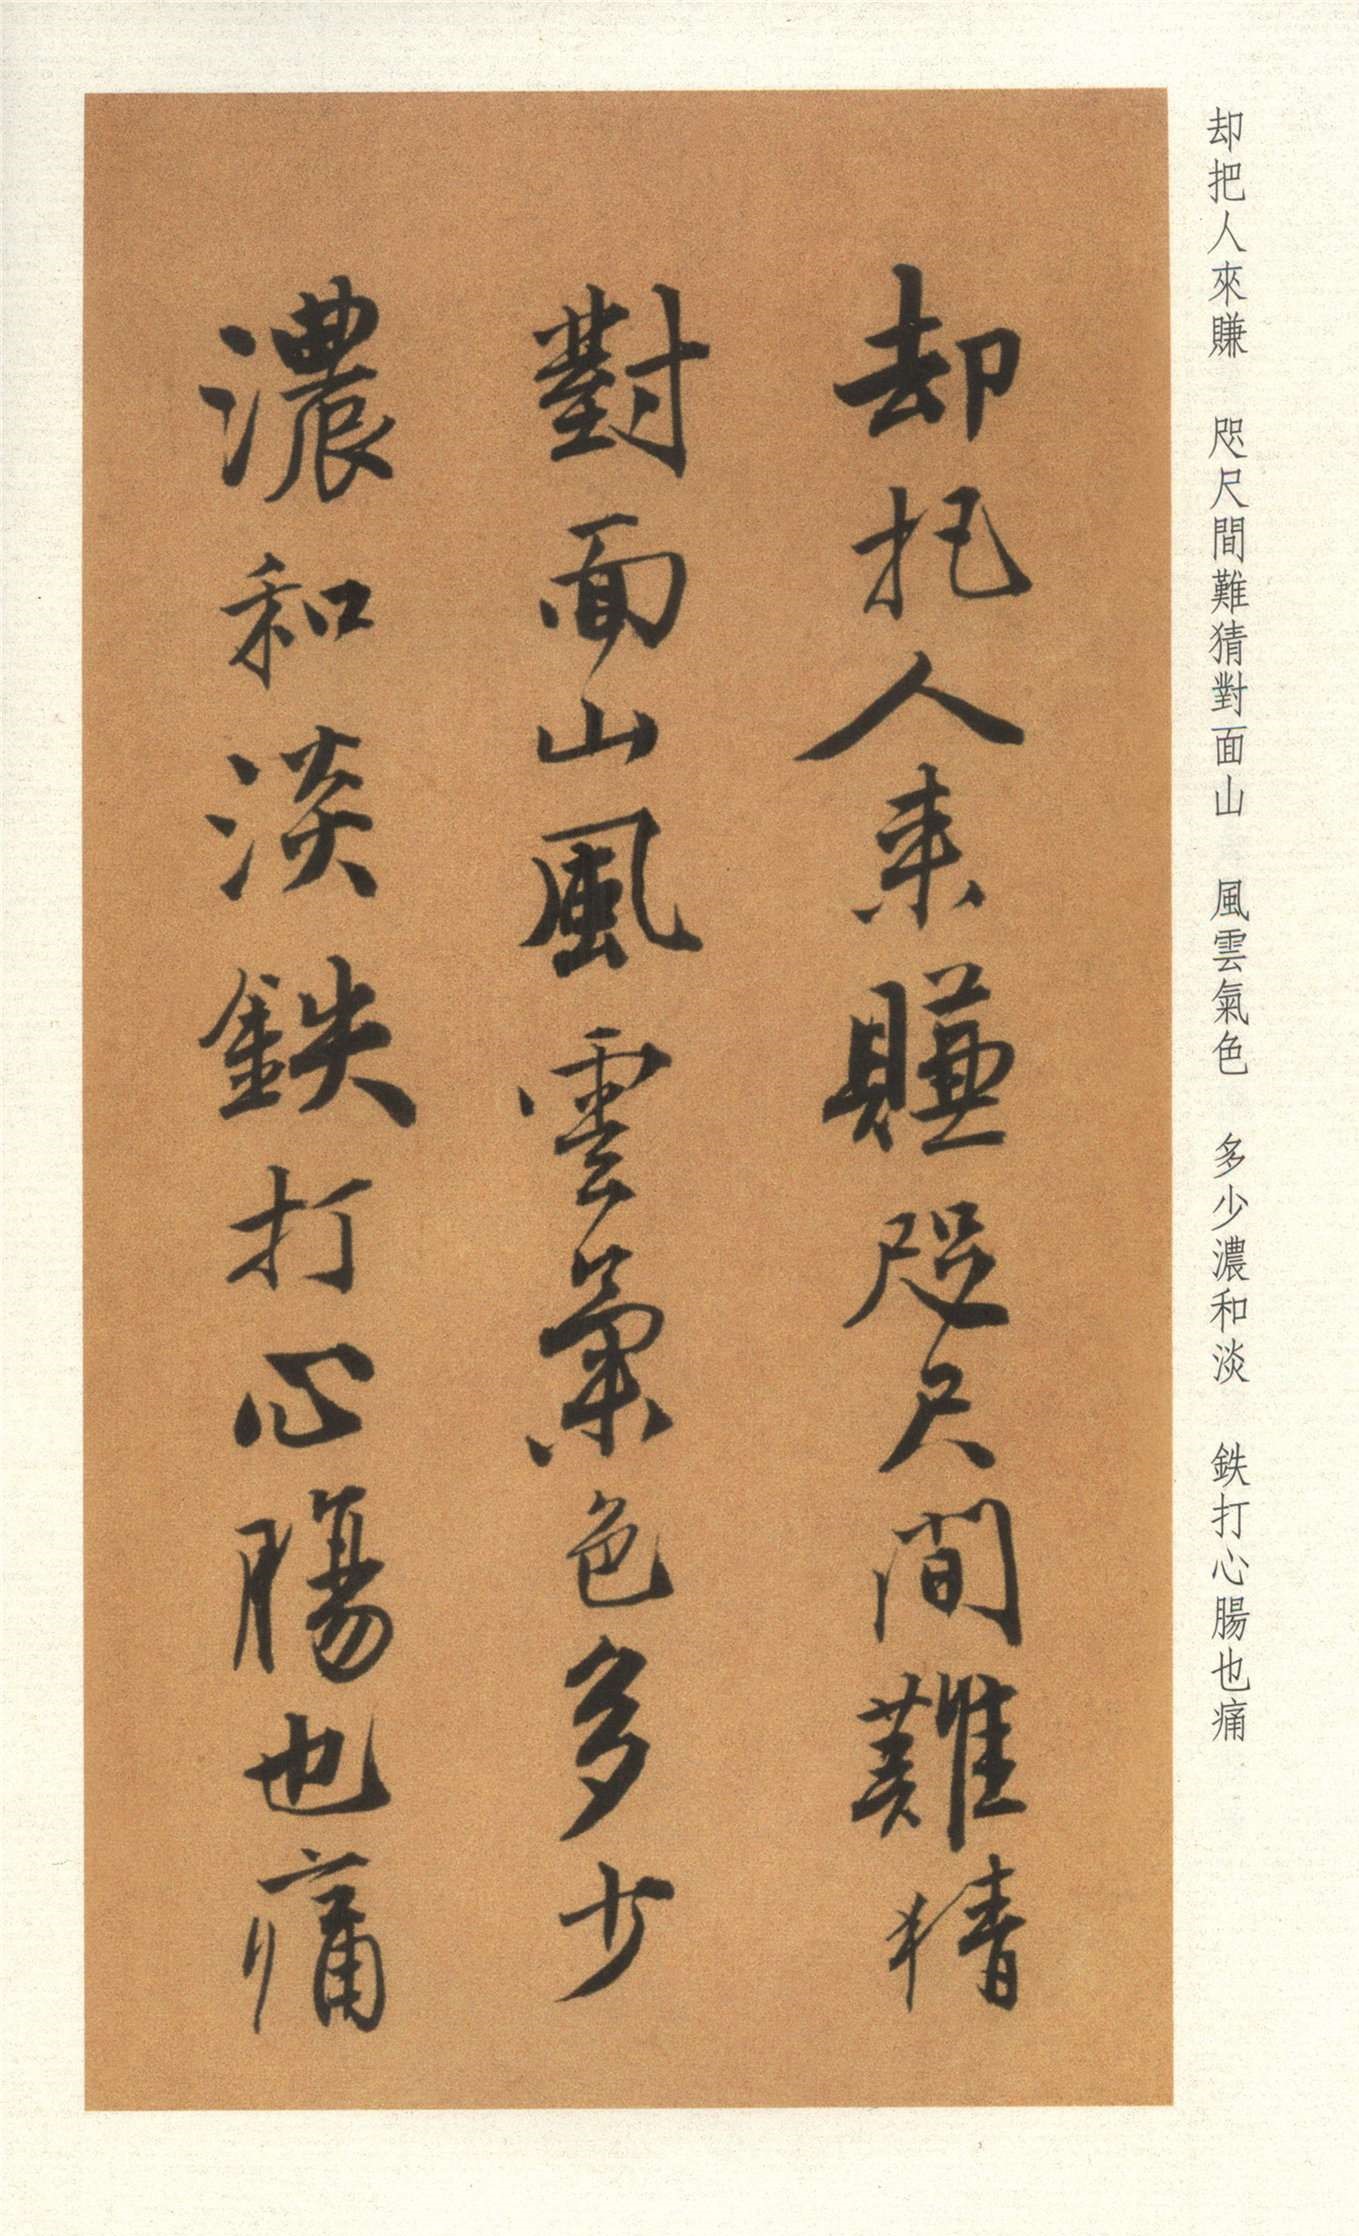 却把人來賺　咫尺間難猜對面山　風雲氣色　多少濃和淡　鉄打心腸也痛
却把人来賺咫尺間難猜
對面山風雲氣色多少
濃和淡鉄打心腸也痛